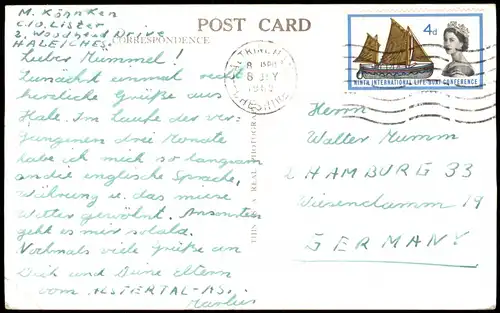 M. Köhnken
C.I.O. Lister
2, Woodhead Drive
HALE/CHES.
POST CARD
CORRESPONDENCE
Lieber Mummel!
Zunächst einmal recht
herzliche Grüße aus
Hale. Im Laufe der ver-
gangenen drei Monate
habe ich mich so langsam
an die englische Sprache,
Währung u. das miese
Wetter gewöhnt. Ansonsten
geht es mir solala.
Nochmals viele Grüße an
Dich und Deine Eltern
vom ALSTERTAL-AS.
Markus
THIS IS A REAL PHOTOGRAPH
ALTRINCHAM
8 JLY
CHESHIRE
4d
NINTH INTERNATIONAL LIFE-BOAT CONFERENCE
Herrn
Walter Mumm
2 HAMBURG 33
Wiesendamm 19
GERMANY